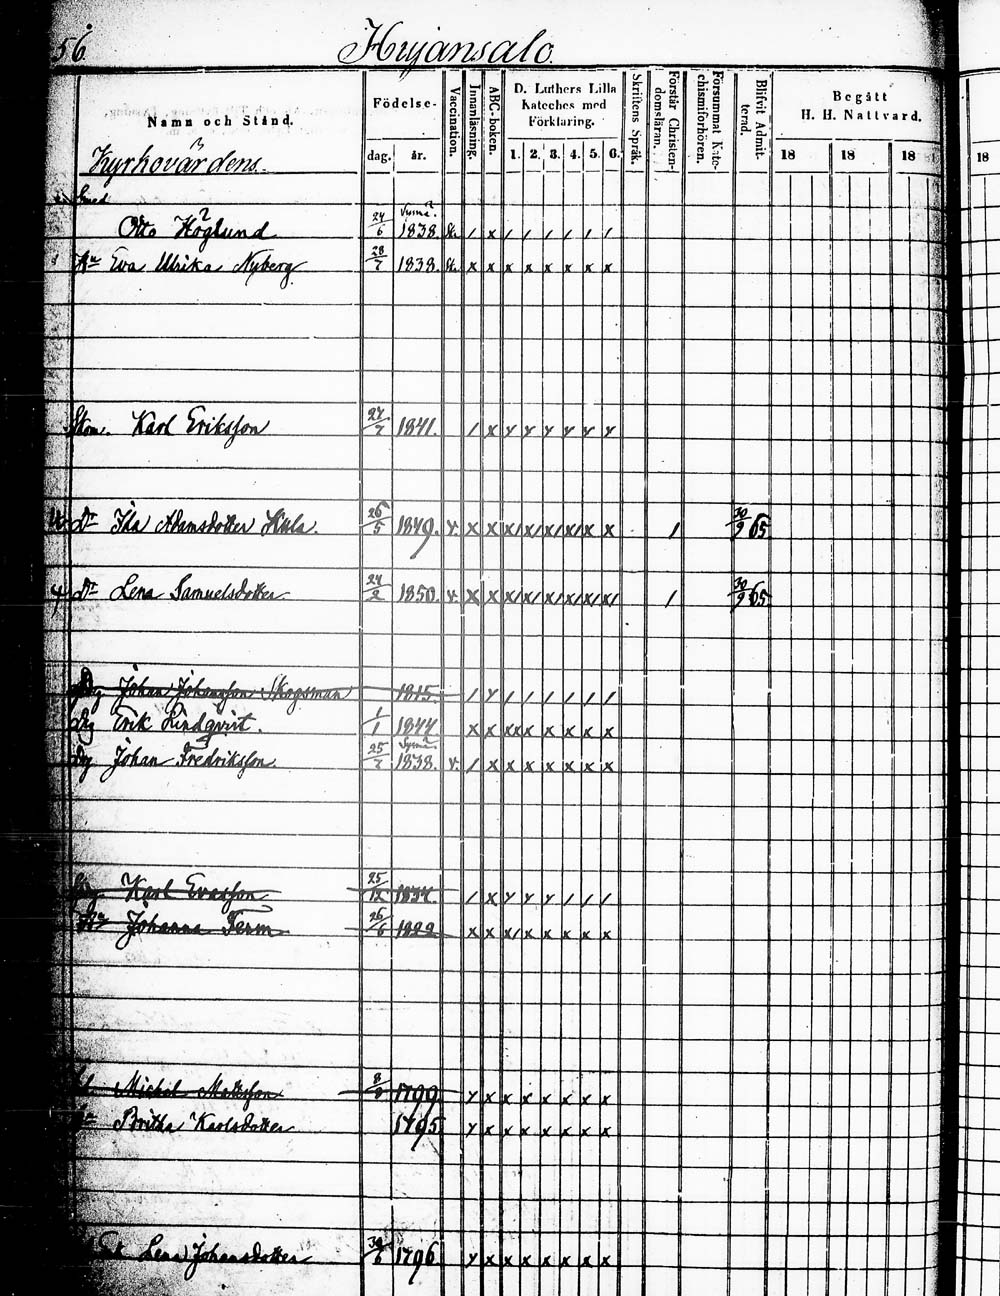 56.
Hujansalo.
Namn och Stånd.
Födelse-
dag. år.
Vaccination.
Innanläsning.
ABC-boken.
D. Luthers Lilla
Kateches med
Förklaring.
1. 2. 3. 4. 5. 6.
Skriftens Språk.
Förstår Christen-
domsläran.
Försummat Kate-
chismiförhören.
Blifvit Admit-
terad.
Begått
H. H. Nattvard.
18 18 18 18
Kyrkovärdens.
Smed
Otto Höglund 24/6 1838. / x / / / / / /
Hu Eva Ulrika Nyberg 28/7 1838. x x x x x x x x
Karl Eriksson 27/7 1841. / x y y y y y y
Dr Ida Adamsdotter 26/5 1849. v. x x x/ x/ x/ x/ x x / 30/9 65
Dr Lena Samuelsdotter 24/2 1850. v. x x x/ x/ x/ x/ x/ x/ / 30/9 65
Drg Johan Johansson Skogsman 1815. / y / / / / / /
Drg Erik Lindqvist. 1/1 1844. x x xx x x x x x
Drg Johan Fredriksson 25/7 1838. v. / x x x x x x x
Drg Karl Evasson 25/12 1834. / x y y y / / /
Hu Johanna Term 26/6 1822. x x x/ x x x x x
Michel Mattsson 8/8 1799. y x x x x x x x
Britha Karlsdotter 1795. y x x x x x x x
Lena Johansdotter 30/6 1796. y x x x x x x x